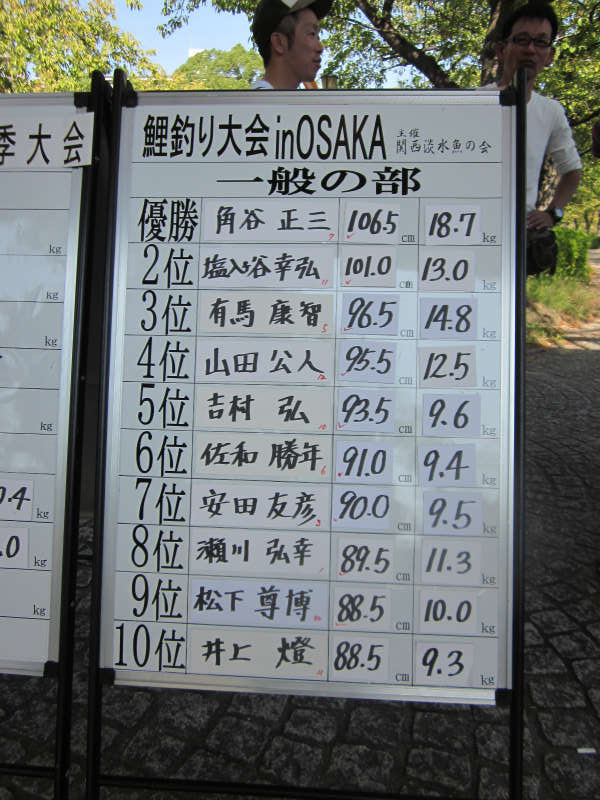 季大会
kg
kg
kg
kg
kg
0.4 kg
.0 kg
kg
鯉釣り大会inOSAKA 主催 関西淡水魚の会
一般の部
優勝 角谷 正三 106.5 cm 18.7 kg
2位 塩入谷幸弘 101.0 cm 13.0 kg
3位 有馬 康智 96.5 cm 14.8 kg
4位 山田 公人 95.5 cm 12.5 kg
5位 吉村 弘 93.5 cm 9.6 kg
6位 佐和 勝年 91.0 cm 9.4 kg
7位 安田友彦 90.0 cm 9.5 kg
8位 瀬川 弘幸 89.5 cm 11.3 kg
9位 松下 尊博 88.5 cm 10.0 kg
10位 井上 燈 88.5 cm 9.3 kg